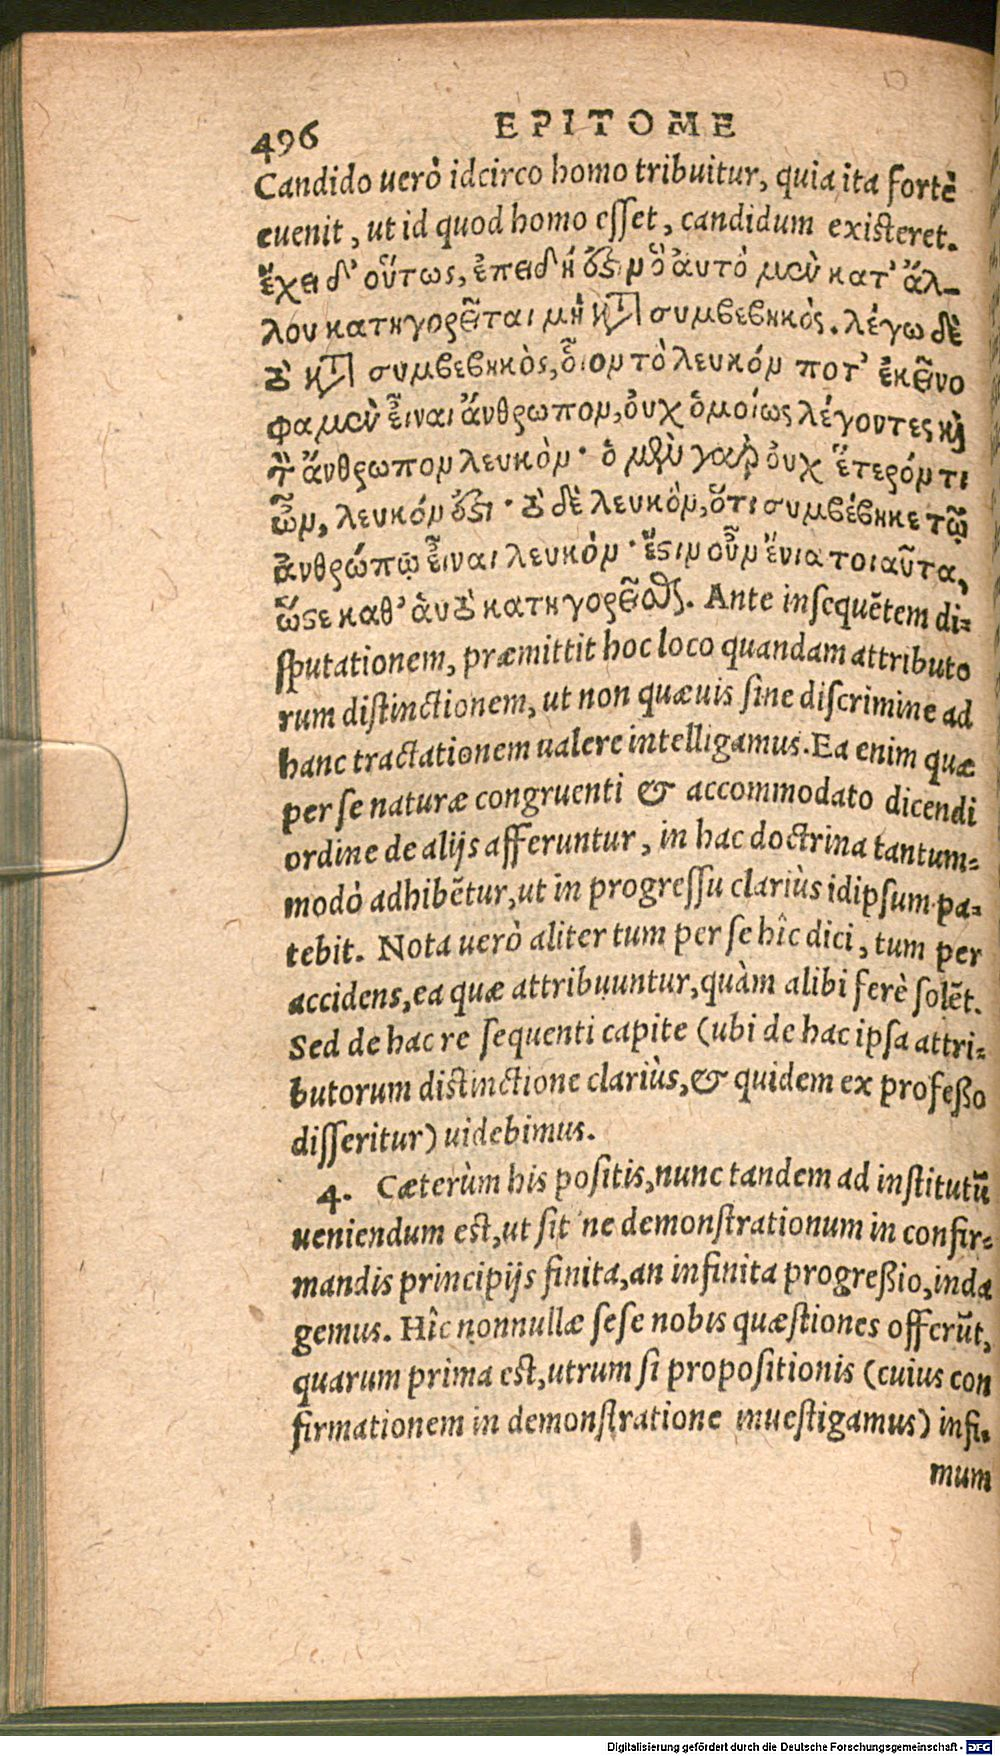 496 EPITOME
Candido uerò idcirco homo tribuitur, quia ita fortè
euenit, ut id quod homo esset, candidum existeret.
ἔχει δ' οὕτως, ἐπειδή ἐστιν ὃ ἀυτὸ μὲν κατ' ἄλ-
λου κατηγορεῖται μὴ κατὰ συμβεβηκὸς. λέγω δὲ
τὸ κατὰ συμβεβηκὸς, οἷον τὸ λευκόν ποτ' ἐκεῖνο
φαμὲν εἶναι ἄνθρωπον, ὀυχ ὁμοίως λέγοντες καὶ
τὸν ἄνθρωπον λευκὸν· ὁ μὲν γὰρ ὀυχ ἕτερόν τι
ὢν, λευκόν ἐστι· τὸ δὲ λευκὸν, ὅτι συμβέβηκε τῷ
ἀνθρώπῳ εἶναι λευκὸν· ἔστιν οὖν ἔνια τοιαῦτα,
ὥστε καθ' ἁυτὸ κατηγορεῖσθαι. Ante insequētem di=
sputationem, præmittit hoc loco quandam attributo
rum distinctionem, ut non quæuis sine discrimine ad
hanc tractationem ualere intelligamus. Ea enim quæ
per se naturæ congruenti & accommodato dicendi
ordine de alijs afferuntur, in hac doctrina tantum=
modò adhibētur, ut in progressu clariùs idipsum pa=
tebit. Nota uerò aliter tum per se hîc dici, tum per
accidens, ea quæ attribuuntur, quàm alibi ferè solēt.
Sed de hac re sequenti capite (ubi de hac ipsa attri=
butorum distinctione clariùs, & quidem ex professo
disseritur) uidebimus.
4. Cæterùm his positis, nunc tandem ad institutū
ueniendum est, ut sit ne demonstrationum in confir=
mandis principijs finita, an infinita progreßio, inda
gemus. Hîc nonnullæ sese nobis quæstiones offerūt,
quarum prima est, utrum si propositionis (cuius con
firmationem in demonstratione inuestigamus) infi=
mum
Digitalisierung gefördert durch die Deutsche Forschungsgemeinschaft - DFG